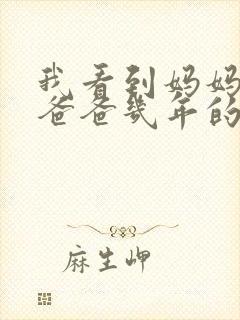 我看到妈妈
爸爸几年的
麻生岬